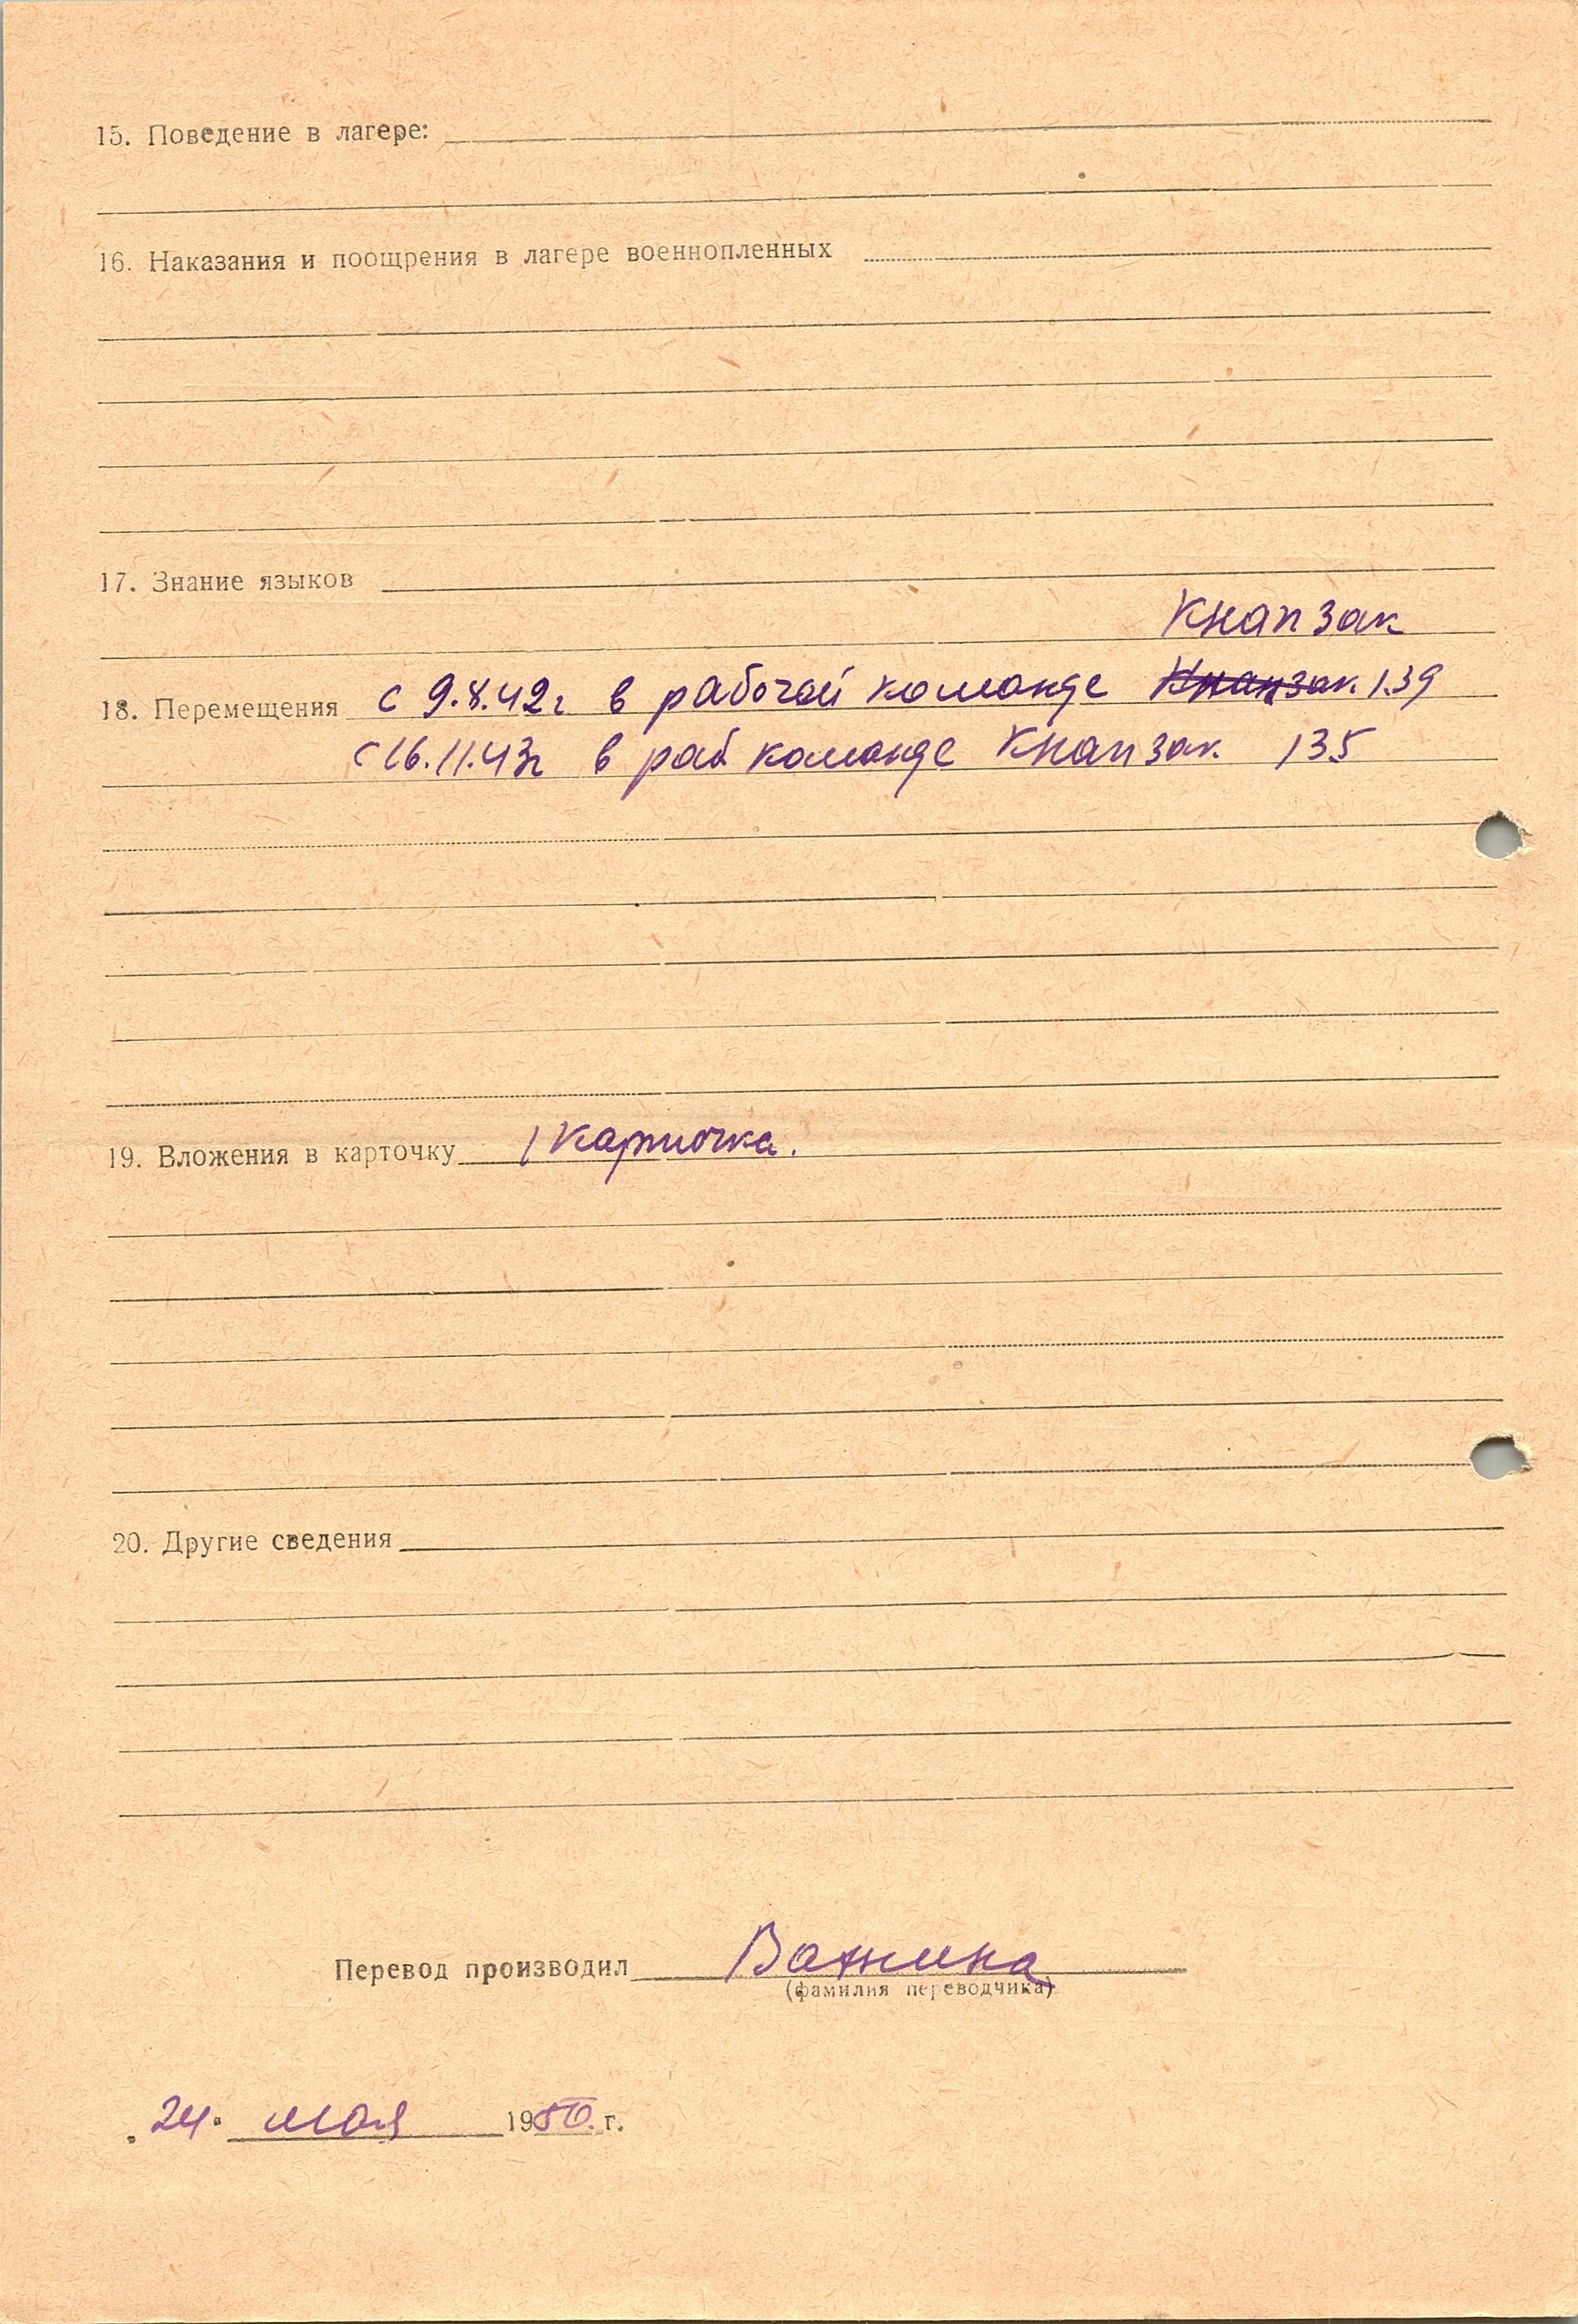 15. Поведение в лагере:
16. Наказания и поощрения в лагере военнопленных
17. Знание языков
Кнапзак
18. Перемещения с 9.8.42г в рабочей команде Кнапзак 139
с 16.11.43г в раб команде Кнапзак 135
19. Вложения в карточку 1 карточка.
20. Другие сведения
Перевод производил Важнина
(фамилия переводчика)
„24" мая 1950 г.